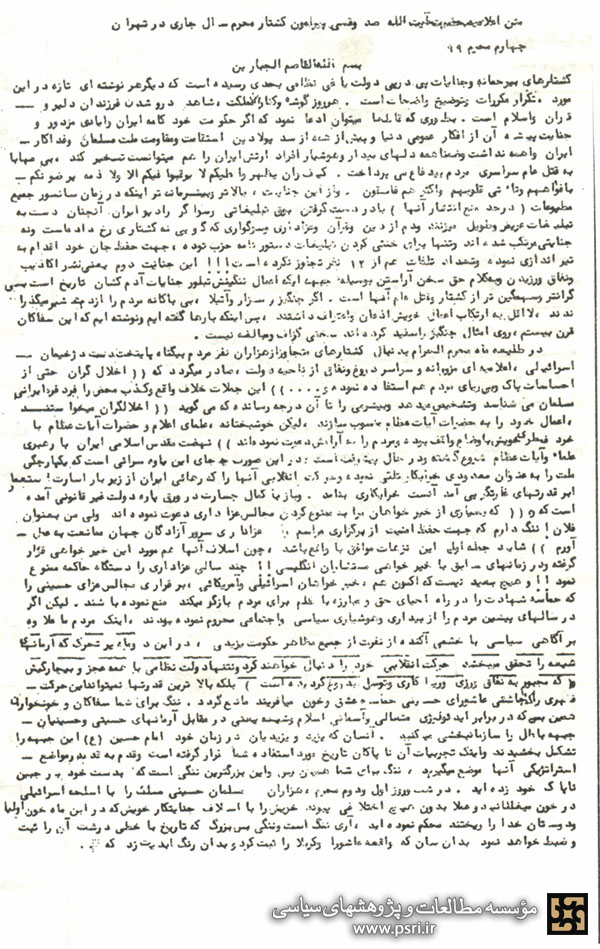 متن اعلامیه حضرت آیت الله صدوقی پیرامون کشتار محرم سال جاری در تهران
چهارم محرم ۹۹
بسم الله القاصم الجبارین
کشتارهای بیرحمانه وجنایات پی درپی دولت یاغی نظامی بحدی رسیده است که دیگر هر نوشته ای تازه در این
مورد ، تکرار مکررات وتوضیح واضحات است . هرروز گوشه وکنار مملکت ، شاهد درو شدن فرزندان دلیر و
قرآن واسلام است . بطوری که قاطعا میتوان ادعا نمود که اگر حکومت خود کامه ایران رایادی مزدور و
جنایت پیشه آن از افکار عمومی دنیا و بیش از شده از سد پولادین استقامت ومقاومت ملت مسلمان وفداکار
ایران واهمه نداشت دلهای بیدار وهوشیار افراد ارتش ایران را هم میتوانست تسخیر کند ، بی مهابا
به قتل عام سراسری مردم بیدفاع می پرداخت . کیف وان یظهروا علیکم لا یرقبوا فیکم الا ولا ذمه یرضونکم
بافواههم وتابی قلوبهم واکثرهم فاسقون . واز این جنایت ، بالاتر وبیشرمانه تر اینکه در زمان سانسور جمیع
مطبوعات ( درحد منع انتشار آنها ) بادر دست گرفتن بوق تبلیغاتی رسوا گر رادیو ایران آنچنان دست به
تبلیغات عریض وطویل میزنند ودم از دین وقرآن وعزاداری وسوگواری که گوئی نه کشتاری رخ داده است ونه
جنایتی مرتکب شده اند وتنها برای خنثی کردن تبلیغات دستورنامه حزب توده ، جهت حفظ جان خود اقدام به
تیر اندازی نموده وتعداد تلفات هم از ۱۲ نفر تجاوز نکرده است !!! این جنایت دوم یعنی نشر اکاذیب
ونفاق ورزیدن وبکلام حق سخن آراستن بوسیله جبهه ایکه اعمال ننگینش تبلور جنایات آدمکشان تاریخ است بسی
گرانتر وسهمگین تر از کشتار وقتل عام آنهاست . اگر چنگیز و سزار وآتیلا ، بی باکانه مردم را ازدم شمشیر میگذرا
ندند ، لااقل به ارتکاب اعمال خویش اذعان واعتراف داشتند ، بی اینکه بارها گفته ایم ونوشته ایم که این سفاکان
قرن بیستم ، روی امثال چنگیز راسفید کرده اند سخنی گزاف ومبالغه نیست .
در طلیعه ماه محرم الحرام بدنبال کشتارهای متجاوز ازهزاران نفر مردم بیگناه پایتخت بدست دژخیمان
اسرائیلی ، اعلامیه ای مزورانه و سراسر دروغ ونفاق از ناحیه دولت ، صادر میگردد که (( اخلال گران حتی از
احساسات پاک وبی ریای مردم هم استفاده نموده و....)) این جملات خلاف واقع وکذب محض را فرد فرد ایرانی
مسلمان می شناسد وتشخیص میدهد وبیشرمی را تا آن درجه رسانده که می گوید (( اخلالگران میخواستند
، اعمال خود را به حضرات آیات عظام منسوب سازند ، لیکن خوشبختانه ، علمای اعلام و حضرات آیات عظام با
خرد فطری خویش باوضاع واقف بوده ومردم را به آرامش دعوت نموده اند )) نهضت مقدس اسلامی ایران با رهبری
علماء وآیات عظام شروع گشته ودر حال پیشرفت است ، در این صورت چه جای این یاوه سرائی است که یکپارچگی
ملت را به عنوان معدودی خرابکار تلقی نموده وحرکت انقلابی آنها را که رهائی ایران از زیر بار اسارت استعمار
ابرقدرتهای غارتگر پی آمد آنست خرابکاری بنامد . وباز با کمال جسارت در ورق پاره دولت غیر قانونی آمده
است که (( که بسیاری از خیر خواهان مرا به ممنوع کردن مجالس عزاداری دعوت نموده اند ولی من بعنوان
فلان ! ننگ دارم که جهت حفظ امنیت از برگزاری مراسم عزاداری سرور آزادگان جهان ممانعت به عمل
آورم )) شاید جمله اول این ترهات موافق با واقع باشد ، چون اسلاف آنها هم مورد این خیر خواهی قرار
گرفته ودر زمانهای سابق با خیر خواهی مستشاران انگلیسی !! چند سالی عزاداری را دستگاه حاکمه ممنوع
نمود !! و هیچ بعید نیست که اکنون هم ، خیر خواهان اسرائیلی وآمریکائی ، برقراری مجالس عزای حسینی را
که حماسه شهادت را در راه احیای حق و مبارزه با ظلم برای مردم بازگو میکند منع نموده باشند . لیکن اگر
درسالهای پیشین مردم را از بیداری وهوشیاری سیاسی واجتماعی محروم نموده بودند ، اینک مردم ما علاوه
بر آگاهی سیاسی با خشمی آکنده از نفرت از جمیع مظاهر حکومت یزیدی ، در این دوماه پر تحرک که آرمانهای
شیعه را تحقق میبخشد حرکت انقلابی خود را دنبال خواهند کرد ونتنها دولت نظامی با همه عجز و بیچارگیش
( که مجبور به نفاق ورزی وریا کاری وتوسل به دروغ گردیده است ) بلکه بالا ترین قدرتها نمیتوانداین حرکت
قهری را که چاشنی عاشورای حسینی حماسه عشق وخون میآفریند مانع گردد . ننگ برای شما سفاکان و خونخواران
همین بس که در برابر ایدئولوژی متعالی وآسمانی اسلام وشیعه یعنی در مقابل آرمانهای حسینی وحسینیان
جبهه باطل را سازمانبخشی میکنید . آنسان که یزید و یزیدیان در زمان خود امام حسین (ع) این جبهه را
تشکل بخشیدند واینک تجربیات آن ناپاکان تاریخ مورد استفاده شما قرار گرفته است وقدم به قدم برمواضع
استراتژیکی آنها موضع میگیرید ، ننگ برای شما همین بس واین بزرگترین ننگی است که بدست خود بر جبین
ناپاک خود زده اید . در شب وروز اول ودوم محرم ، هزاران مسلمان حسینی مسلک را با اسلحه اسرائیلی
در خون میغلتانید وعملا بدون هیچ اختلافی پیوند خویش را با اسلاف جنایتکار خویش که در این ماه خون اولیا
ودوستان خدا را ریختند محکم نموده اید ، آری ننگ است وننگی بس بزرگ که تاریخ با خطی درشت آن را ثبت
و ضبط خواهد نمود بدان سان که واقعه عاشورا وکربلا را ثبت کرد و بدان رنگ ابدیت زد
مؤسسه مطالعات و پژوهشهای سیاسی
www.psri.ir